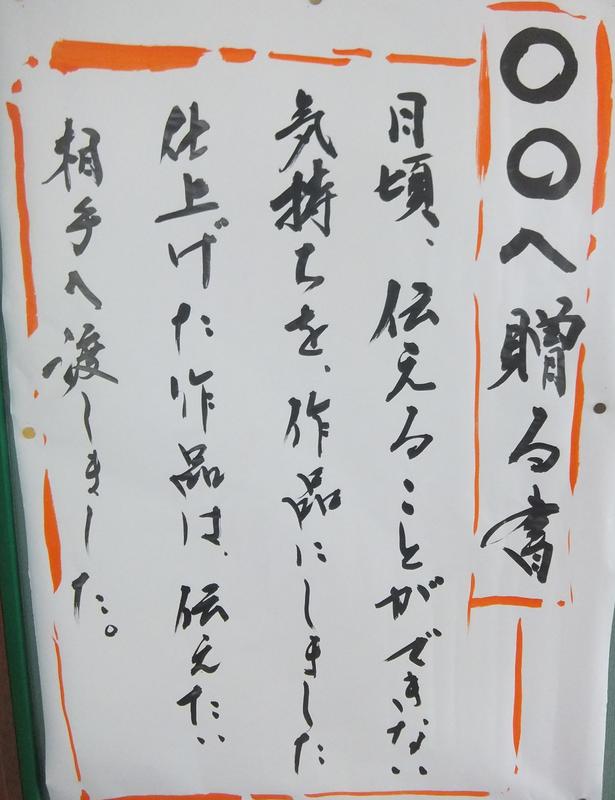 〇〇へ贈る書
日頃、伝えることができない
気持ちを、作品にしました
仕上げた作品は、伝えたい
相手へ渡しました。